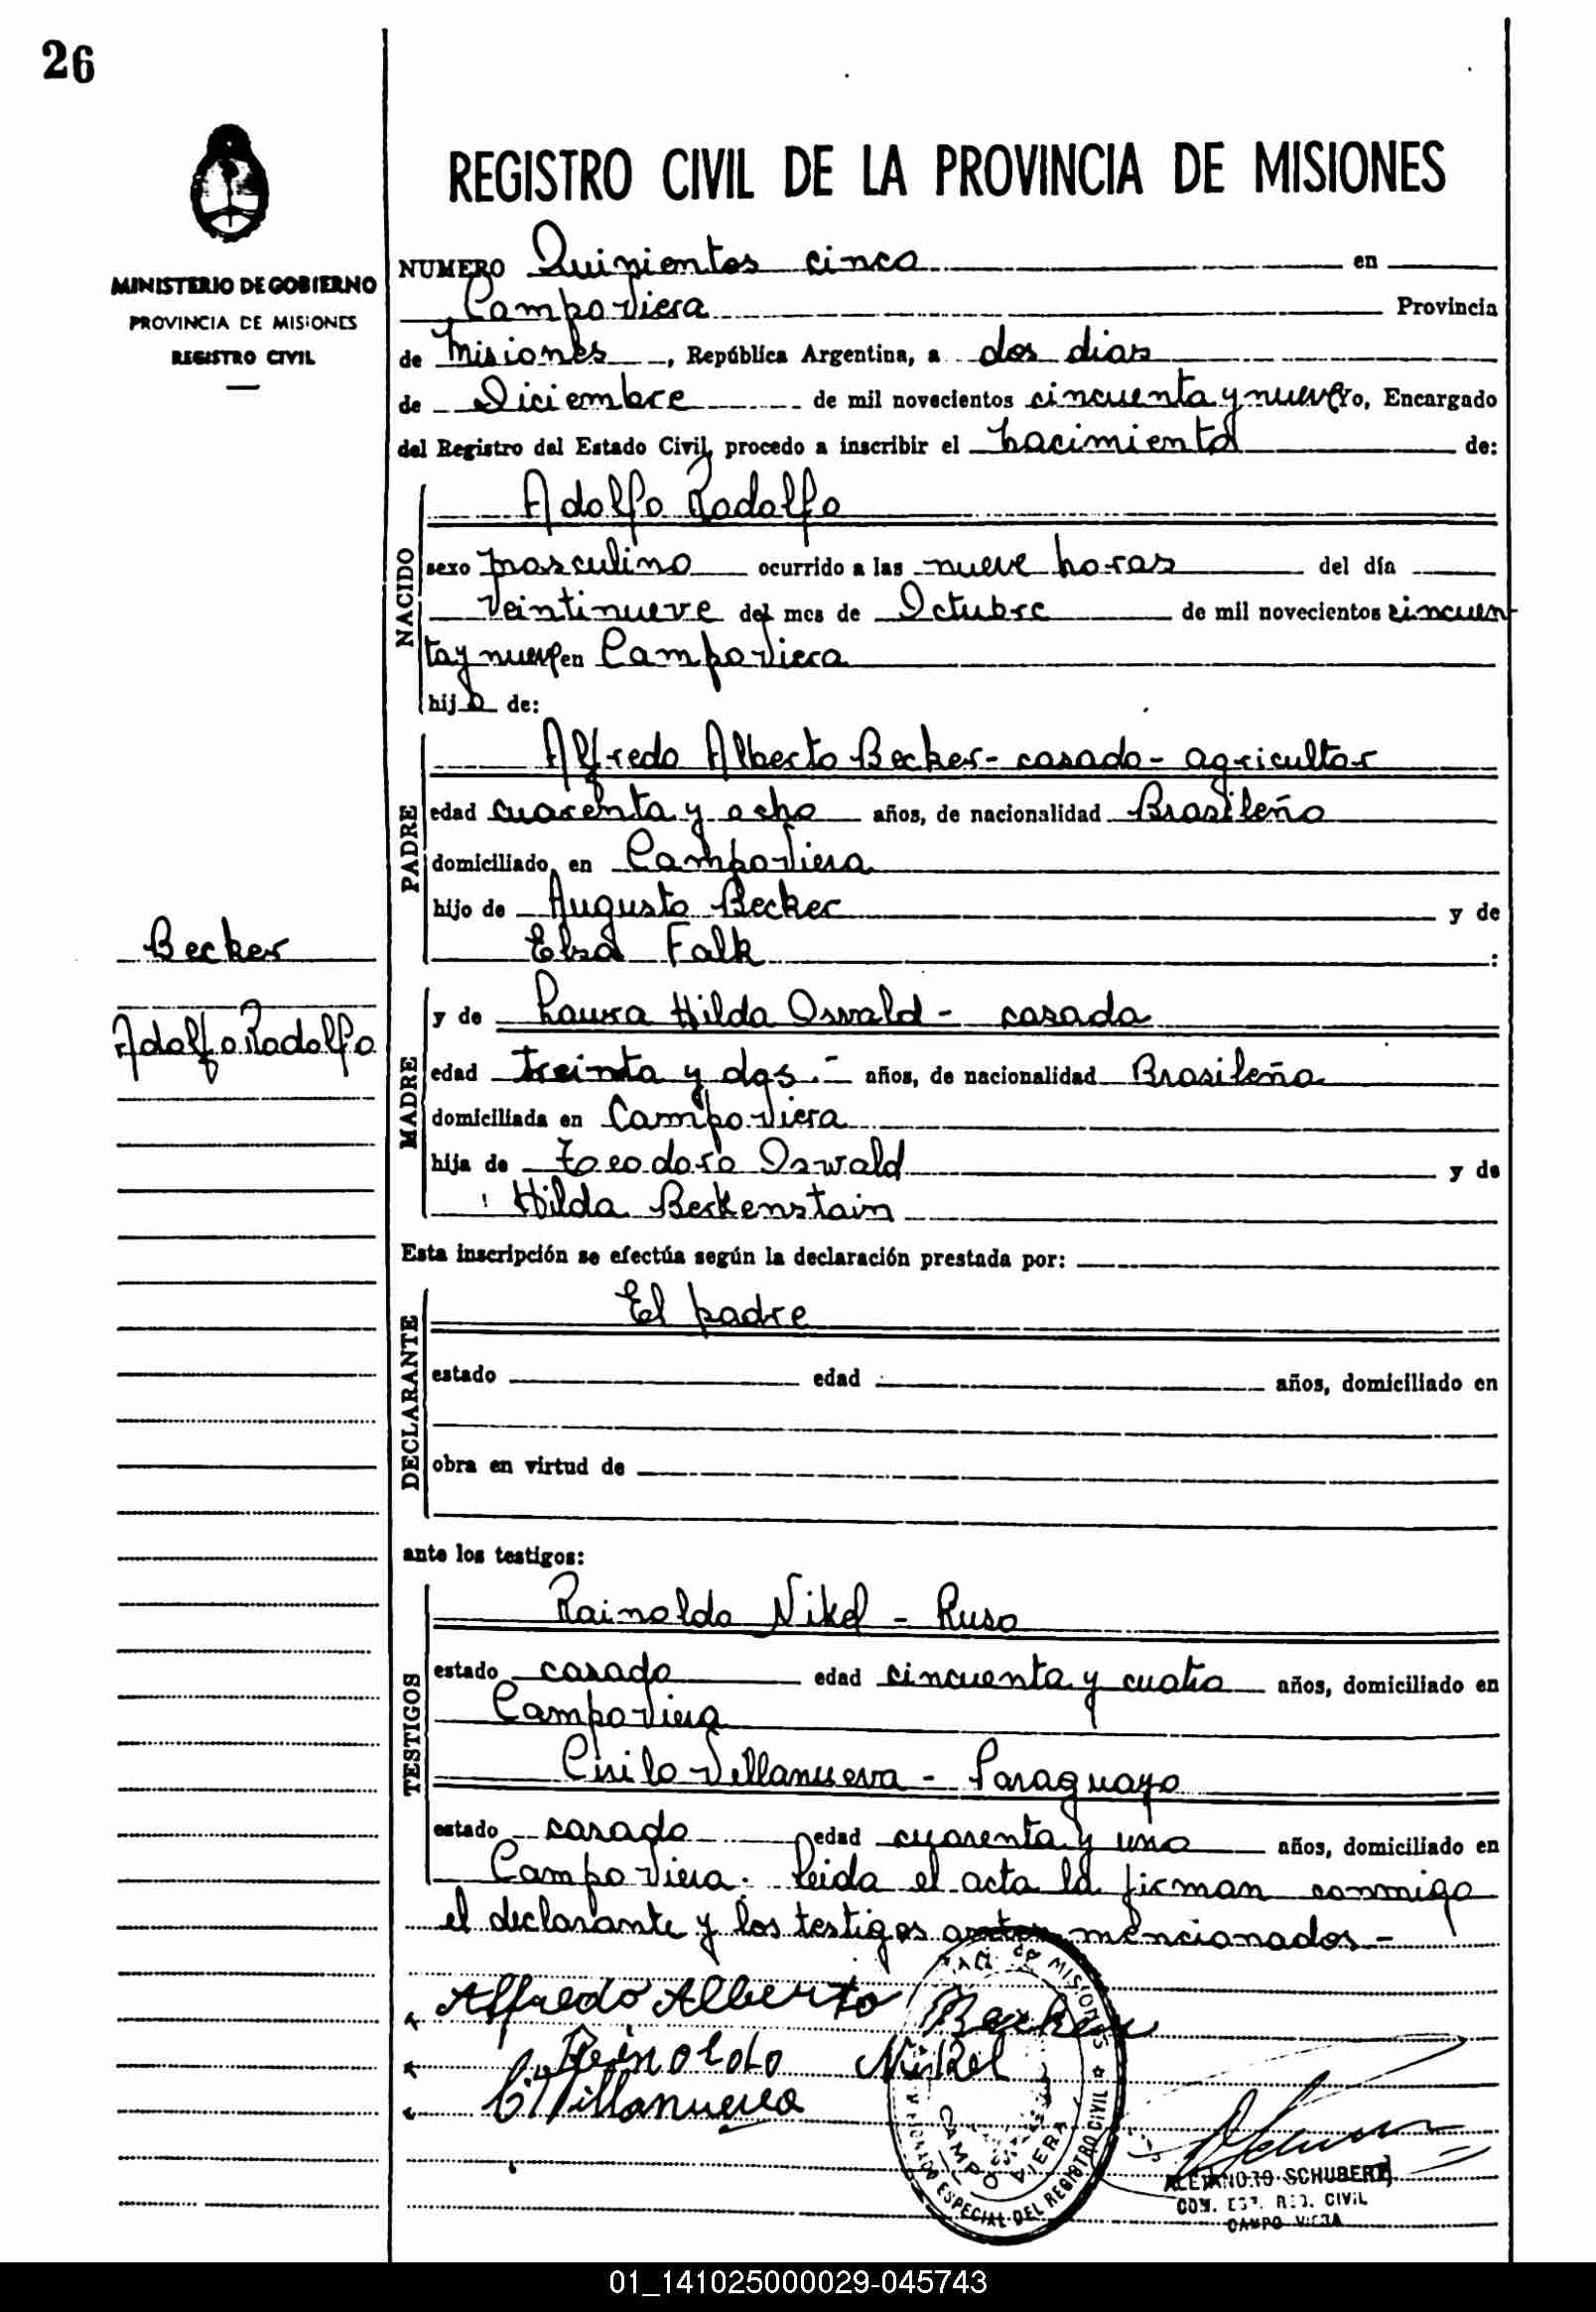 26
MINISTERIO DE GOBIERNO
PROVINCIA DE MISIONES
REGISTRO CIVIL
Becker
Adolfo Rodolfo
REGISTRO CIVIL DE LA PROVINCIA DE MISIONES
NUMERO Quinientos cinco en
Campo Viera Provincia
de Misiones, República Argentina, a dos dias
de Diciembre de mil novecientos cincuenta y nueve yo, Encargado
del Registro del Estado Civil, procedo a inscribir el nacimiento de:
NACIDO
Adolfo Rodolfo
sexo masculino ocurrido a las nueve horas del día
Veintinueve del mes de Octubre de mil novecientos cincuen
ta y nueve en Campo Viera
hijo de:
PADRE
Alfredo Alberto Becker - casado - agricultor
edad cuarenta y ocho años, de nacionalidad Brasileño
domiciliado en Campo Viera
hijo de Augusto Becker y de
Elsa Falk :
MADRE
y de Laura Hilda Oswald - casada
edad treinta y dos .- años, de nacionalidad Brasileña
domiciliada en Campo Viera
hija de Teodoro Oswald y de
Hilda Berkenstain
Esta inscripción se efectúa según la declaración prestada por:
DECLARANTE
El padre
estado edad años, domiciliado en
obra en virtud de
ante los testigos:
TESTIGOS
Rainoldo Nikel - Ruso
estado casado edad cincuenta y cuatro años, domiciliado en
Campo Viera
Cirilo Villanueva - Paraguayo
estado casado edad cuarenta y uno años, domiciliado en
Campo Viera. Leida el acta la firman conmigo
el declarante y los testigos antes mencionados -
Alfredo Alberto Becker
Reinoldo Nikel
C. Villanueva
MISIONES
ESPECIAL DEL REGISTRO CIVIL
CAMPO VIERA
ALEJANDRO SCHUBERT
COM. ESP. REG. CIVIL
CAMPO VIERA
01_141025000029-045743